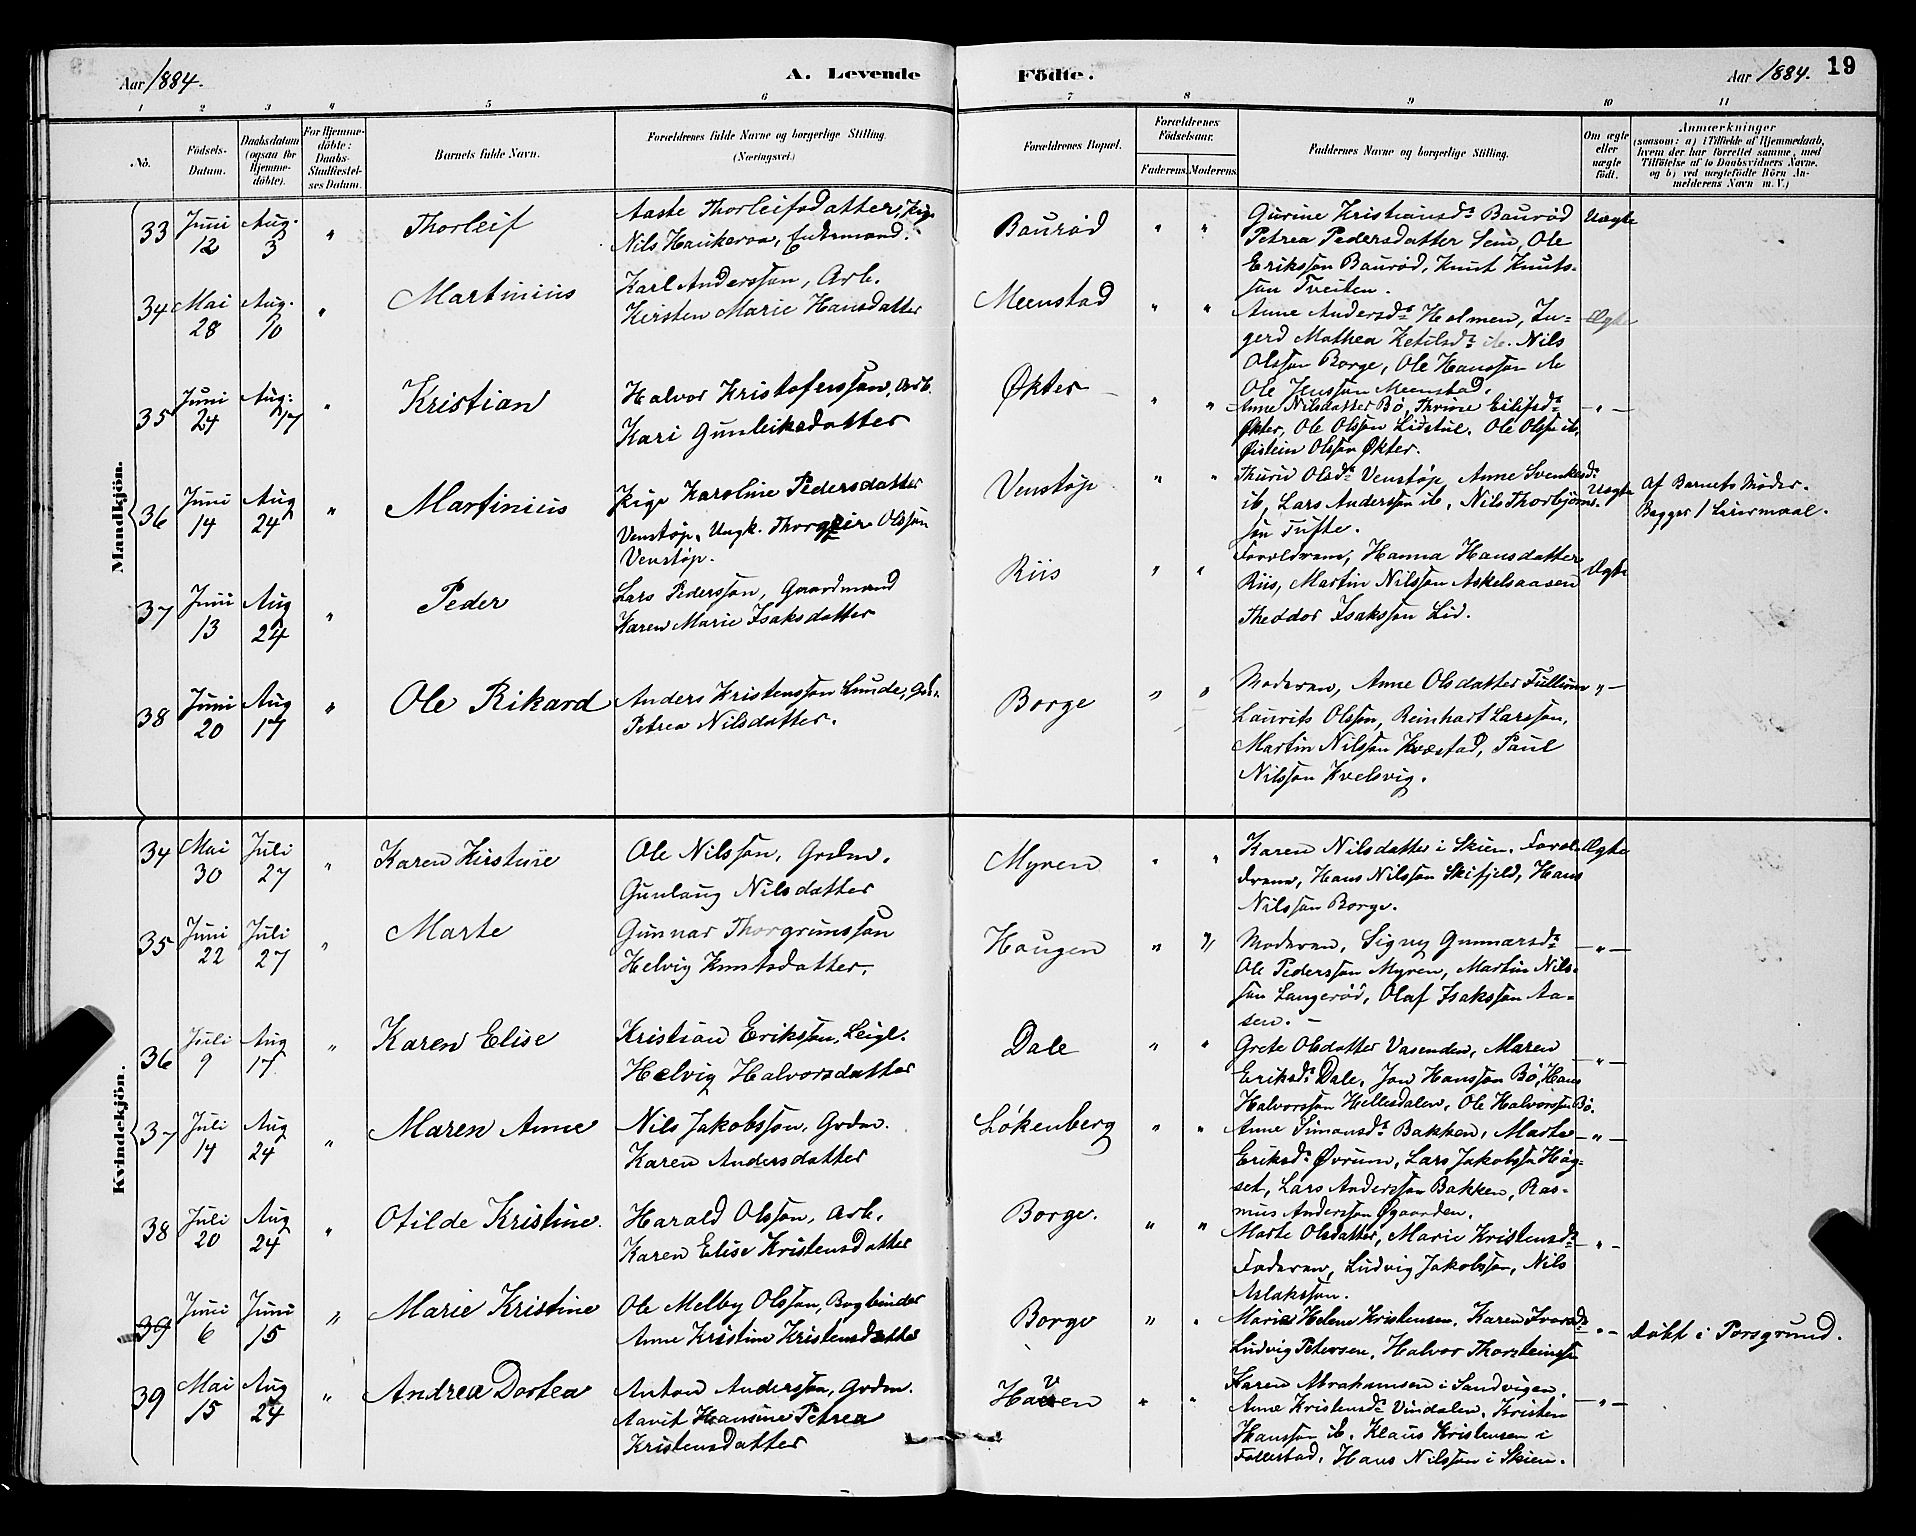 Aar 1884. A. Levende Födte. Aar 1884. 19
1 2 3 4 5 6 7 8 9 10 11
No.
Födsels-Datum.
Daabsdatum (ogsaa for Hjemme-döbte).
For Hjemme-döbte: Daabs-Stadfæstel-ses Datum.
Barnets fulde Navn.
Forældrenes fulde Navne og borgerlige Stilling. (Næringsvei.)
Forældrenes Bopæl.
Forældrenes Födselsaar.
Faderens. Moderens.
Faddernes Navne og borgerlige Stilling.
Om ægte eller uægte födt.
Anmærkninger
(saasom: a) i Tilfælde af Hjemmedaab,
hvem der har forrettet samme, med
Tilföielse af to Daabsvidners Navne,
og b) ved uægtefödte Börn An-
melderens Navn m. V.)
Mandkjön.
33 Juni 12 Aug. 3 " Thorleif
Aaste Thorleifsdatter, Pige
Nils Haukeraa, Enkemand.
Baurød " "
Gurine Kristiansdr Baurød
Petrea Pedersdatter Sem, Ole
Eriksson Baurød, Knut Knuts-
son Tveiten.
Uægte
34 Mai 28 Aug. 10 " Martinius
Karl Andersson, Arb.
Kirsten Marie Hansdatter
Meenstad " "
Anne Andersdr Holmen, In-
gerd Mathea Ketilsdr ib. Nils
Olsson Borge, Ole Hansson ib
Ole Jensson Meenstad.
Ægte
35 Juni 24 Aug: 17 " Kristian
Halvor Kristofersson, Arb.
Kari Gunleiksdatter
Økter " "
Anne Nilsdatter Bö, Thrine Eilifsdr
Økter, Ole Olsson Lidstul. Ole Olss ib,
Øistein Olsson Økter.
- " -
36 Juni 14 Aug 24 " Martinius
Pige Karoline Pedersdatter
Venstøp, Ungk. Thorgeir Olsson
Venstøp.
Venstøp " "
Thurid Olsdr Venstøp, Anne Svenkesdr
ib, Lars Andersson ib, Nils Thorbjørns-
søn Tufte.
Uægte
Af Barnets Moder.
Begges 1 Leiermaal.
37 Juni 13 Aug 24 " Peder
Lars Pedersson, Gaardmand
Karen Marie Isaksdatter
Riis " "
Forældrene, Hanna Hansdatter
Riis, Martin Nilsson Askelsaasen
Theodor Isaksson Lid.
Ægte
38 Juni 20 Aug 17 " Ole Rikard
Anders Kristensson Lunde,
Petrea Nilsdatter.
Borge " "
Moderen, Anne Olsdatter
Laurits Olsson, Reinhart Larsson,
Martin Nilsson Kvæstad, Paul
Nilsson Kvelsvig.
" -
Kvindekjön.
34 Mai 30 Juli 27 " Karen Kirstine
Ole Nilsson, Grdm.
Gunlaug Nilsdatter
Myren " "
Karen Nilsdatter i Skien. Foræl-
drene, Hans Nilsson Skifjeld, Hans
Nilsson Borge.
Ægte
35 Juni 22 Juli 27 " Marte
Gunnar Thorgrimsson
Helvig Knutsdatter.
Haugen " "
Moderen, Signy Gunnarsdr
Ole Pedersson Myren, Martin Nils-
son Langerød, Olaf Isaksson Aa-
sen. -
- " -
36 Juli 9 Aug 17 " Karen Elise
Kristian Eriksson, Leigl.
Helvig Halvorsdatter
Dale " "
Grete Olsdatter Vasenden, Maren
Eriksdr Dale, Jon Hansson Bö, Hans
Halvorsson Hellesdalen, Ole Halvorsson Bö.
- " -
37 Juli 14 Aug 24 " Maren Anne
Nils Jakobsson, Grdm.
Karen Andersdatter
Løkenberg " "
Anne Simonsdr Bakken, Marte
Eriksdr Øvrum, Lars Jakobss Høg-
set, Lars Andersson Bakken, Ras-
mus Andersson Øgaarden.
- " -
38 Juli 20 Aug 24 " Otilde Kristine.
Harald Olsson, Arb.
Karen Elise Kristensdatter
Borge. " "
Marte Olsdatter, Marie Kristensdr
Faderen, Ludvig Jakobsson, Nils
Aslaksson.
- " -
39 Juni 6 Juni 15 " Marie Kristine
Ole Melby Olsson, Bogbinder
Anne Kristine Kristensdatter
Borge " "
Marie Helene Kristensen. Karen Ivarsdr
Ludvig Petersen, Halvor Thorsteinssn
" -
Døbt i Porsgrund.
39 Mai 15 Aug 24 " Andrea Dortea
Anton Andersson, Grdm.
Aavit Hansine Petrea
Kristensdatter
Haven " "
Karen Abrahamsen i Sandvigen.
Anne Kristensdr Vindalen. Kristen
Hansson ib. Klaus Kristensen i
Follestad, Hans Nilsson i Skien.
- " -